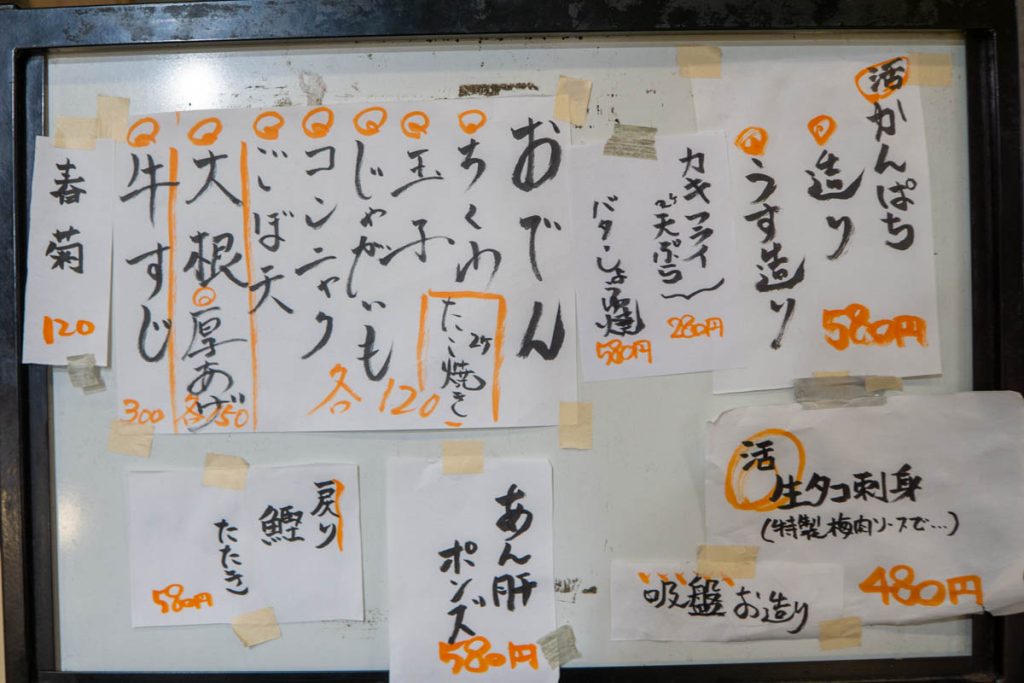 活かんぱち
造り
うす造り
580円
カキフライ
天ぷら
280円
バタしょう焼
580円
おでん
ちくわ
たこ焼き
玉子
じゃがいも
コンニャク
ごぼ天
各120
大根
厚あげ
各150
牛すじ
300
春菊
120
活
生タコ刺身
(特製梅肉ソースで…)
480円
吸盤お造り
あん肝
ポンズ
580円
戻り
鰹
たたき
580円